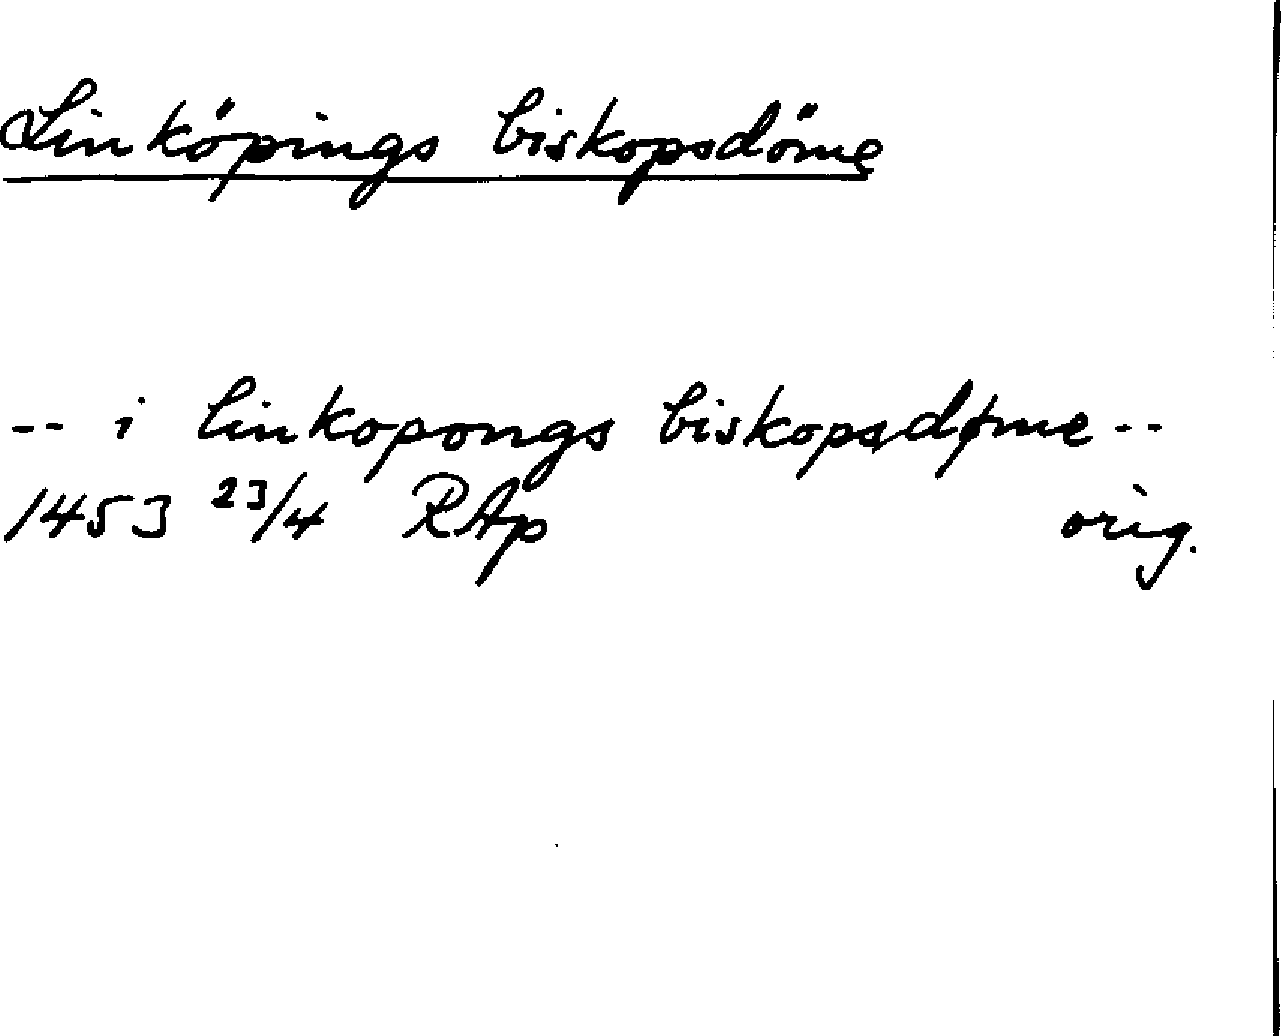 Linköpings biskopsdöme
-- i linkopongs biskopsdøme --
1453 23/4 RAp orig.